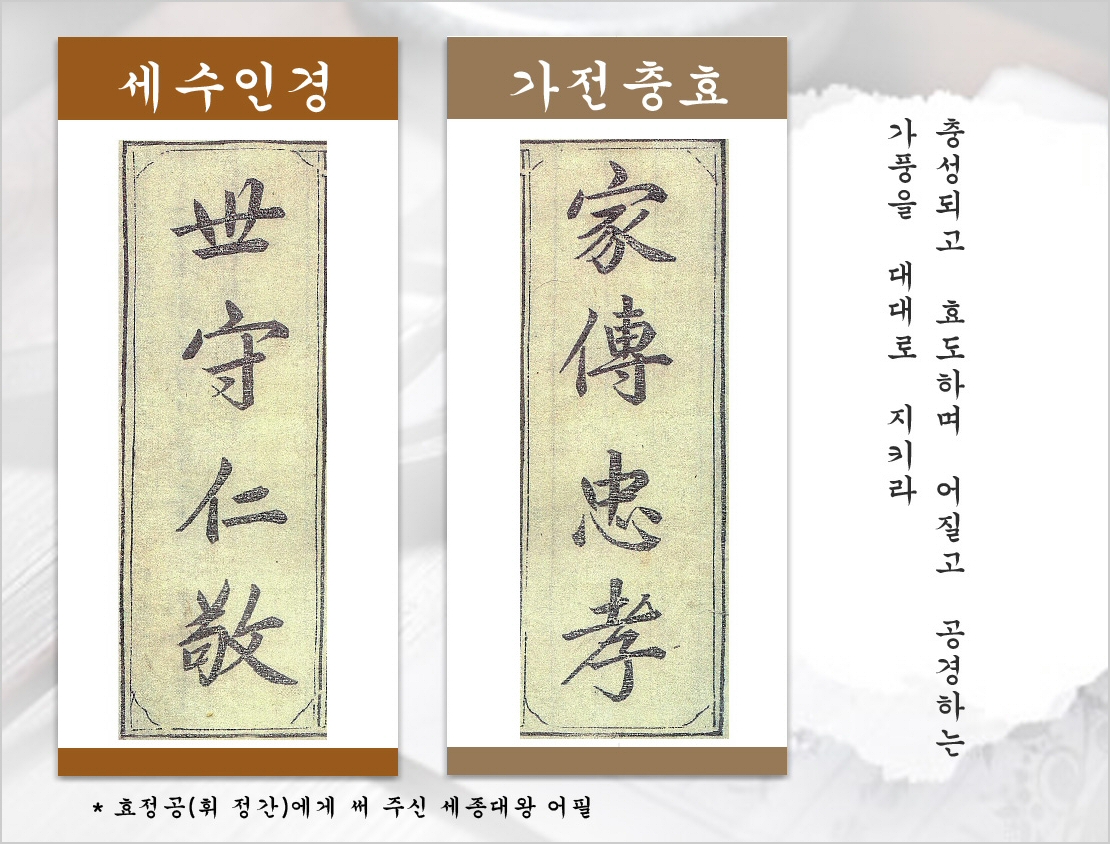 세수인경
世守仁敬
가전충효
家傳忠孝
충성되고 효도하며 어질고 공경하는
가풍을 대대로 지키라
* 효정공(휘 정간)에게 써 주신 세종대왕 어필